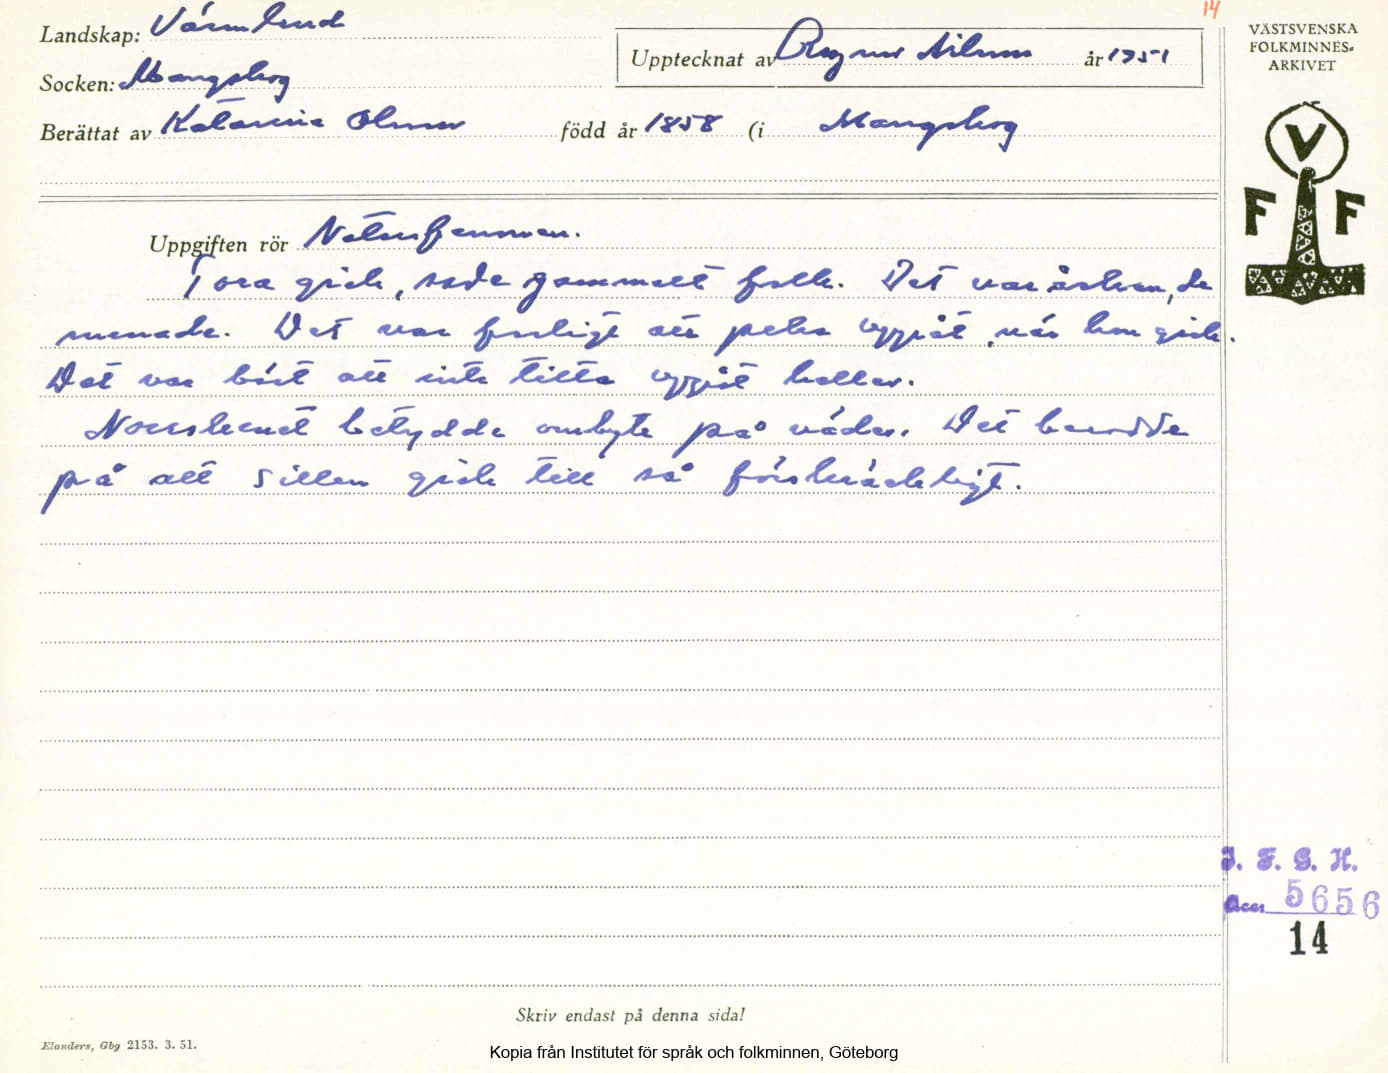 14
Landskap: Värmland
VÄSTSVENSKA
FOLKMINNES-
ARKIVET
Upptecknat av Ragnar Nilsson år 1951
Socken: Mangskog
Berättat av Katarina Olsson född år 1858 (i Mangskog
V
F F
Uppgiften rör Naturfenomen.
Tora gick, sade gammalt folk. Det var åskan, de
menade. Det var farligt att peka uppåt, när hon gick.
Det var bäst att inte titta uppåt heller.
Norrskenet betydde ombyte på väder. Det berodde
på att sillen gick till så förskräckligt.
I. F. G. H.
Acc. 5656
14
Skriv endast på denna sida!
Elanders, Gbg 2153. 3. 51.
Kopia från Institutet för språk och folkminnen, Göteborg